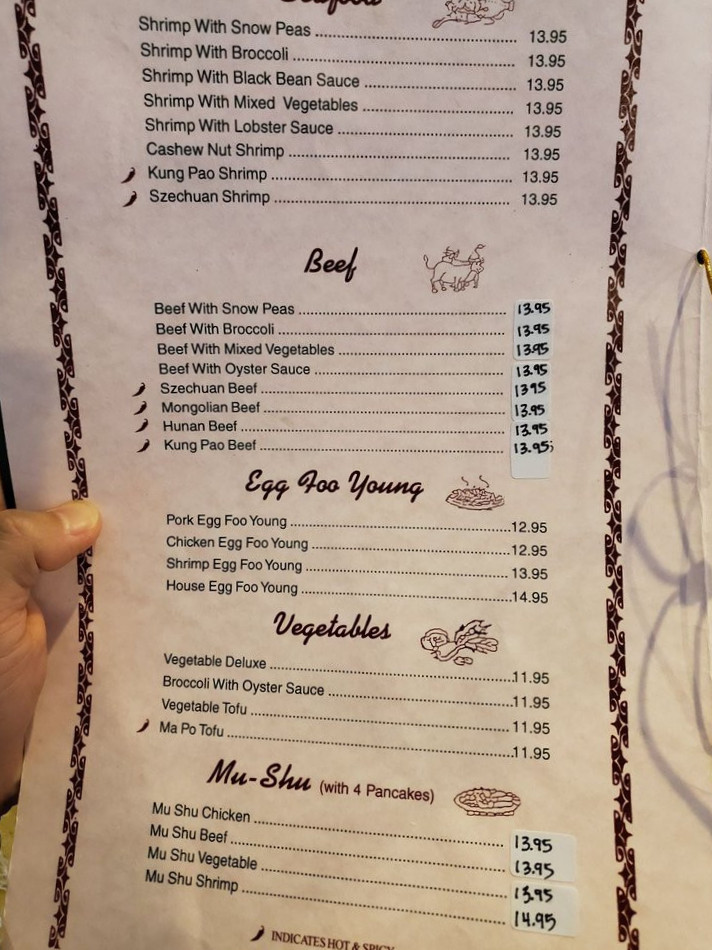 Seafood
Shrimp With Snow Peas 13.95
Shrimp With Broccoli 13.95
Shrimp With Black Bean Sauce 13.95
Shrimp With Mixed Vegetables 13.95
Shrimp With Lobster Sauce 13.95
Cashew Nut Shrimp 13.95
Kung Pao Shrimp 13.95
Szechuan Shrimp 13.95
Beef
Beef With Snow Peas 13.95
Beef With Broccoli 13.95
Beef With Mixed Vegetables 13.95
Beef With Oyster Sauce 13.95
Szechuan Beef 13.95
Mongolian Beef 13.95
Hunan Beef 13.95
Kung Pao Beef 13.95
Egg Foo Young
Pork Egg Foo Young 12.95
Chicken Egg Foo Young 12.95
Shrimp Egg Foo Young 13.95
House Egg Foo Young 14.95
Vegetables
Vegetable Deluxe 11.95
Broccoli With Oyster Sauce 11.95
Vegetable Tofu 11.95
Ma Po Tofu 11.95
Mu-Shu (with 4 Pancakes)
Mu Shu Chicken 13.95
Mu Shu Beef 13.95
Mu Shu Vegetable 13.95
Mu Shu Shrimp 14.95
INDICATES HOT & SPICY